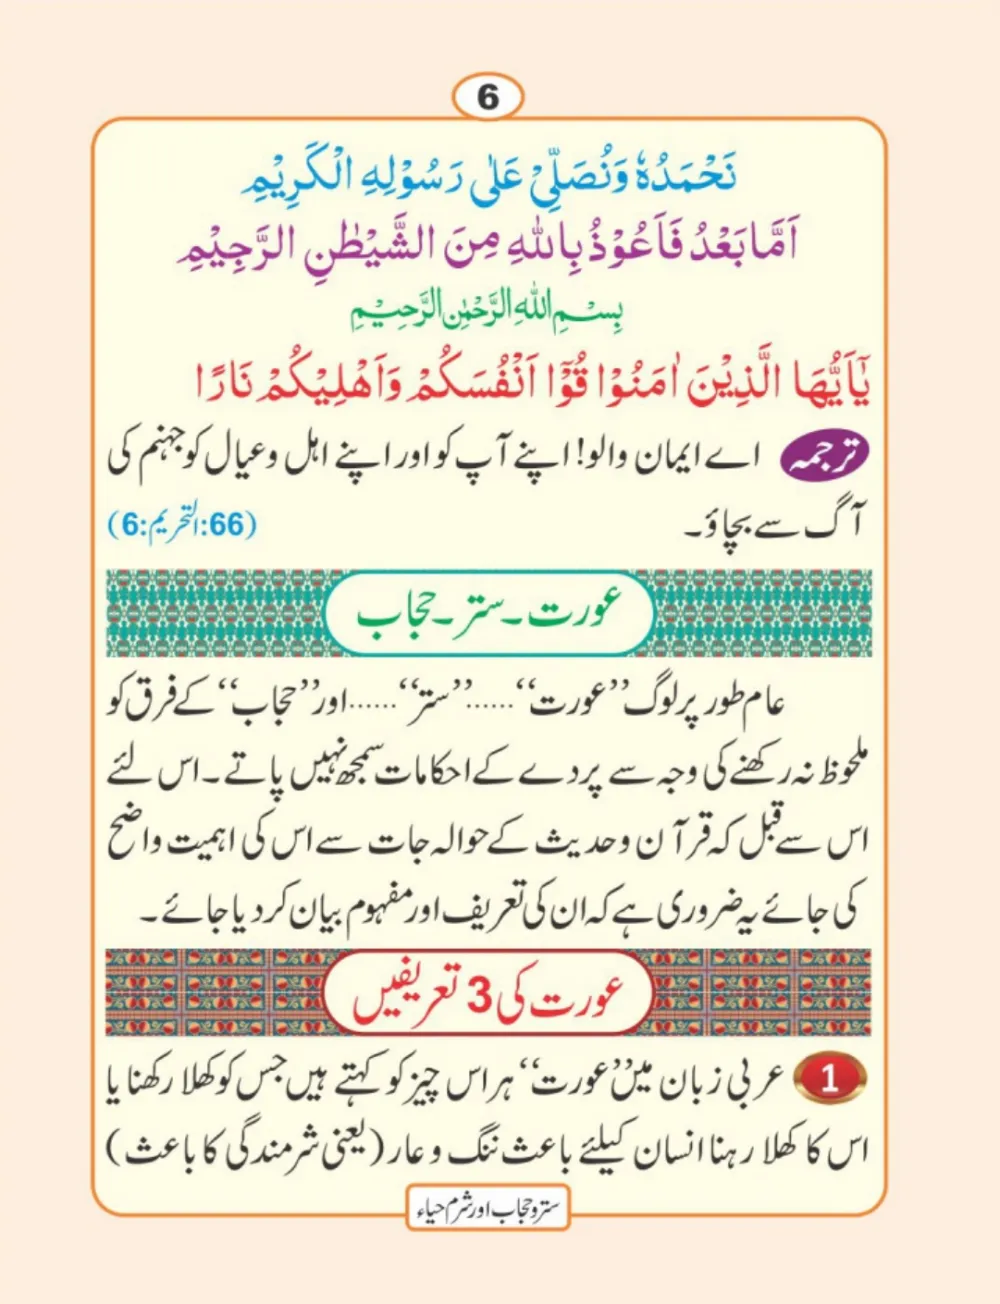 6
نَحْمَدُہٗ وَنُصَلِّیْ عَلٰی رَسُوْلِهِ الْكَرِیْمِ
اَمَّا بَعْدُ فَاَعُوْذُ بِاللّٰهِ مِنَ الشَّیْطٰنِ الرَّجِیْمِ
بِسْمِ اللّٰهِ الرَّحْمٰنِ الرَّحِیْمِ
یٰۤاَیُّهَا الَّذِیْنَ اٰمَنُوْا قُوْۤا اَنْفُسَكُمْ وَاَهْلِیْكُمْ نَارًا
ترجمہ اے ایمان والو! اپنے آپ کو اور اپنے اہل وعیال کو جہنم کی
آگ سے بچاؤ۔ (66:التحریم:6)
عورت۔ستر۔حجاب
عام طور پر لوگ ’’عورت‘‘......’’ستر‘‘......اور ’’حجاب‘‘ کے فرق کو
ملحوظ نہ رکھنے کی وجہ سے پردے کے احکامات سمجھ نہیں پاتے۔اس لئے
اس سے قبل کہ قرآن وحدیث کے حوالہ جات سے اس کی اہمیت واضح
کی جائے یہ ضروری ہے کہ ان کی تعریف اور مفہوم بیان کر دیا جائے۔
عورت کی 3 تعریفیں
1 عربی زبان میں ’’عورت‘‘ ہر اس چیز کو کہتے ہیں جس کو کھلا رکھنا یا
اس کا کھلا رہنا انسان کیلئے باعث ننگ و عار (یعنی شرمندگی کا باعث)
ستر و حجاب اور شرم حیاء